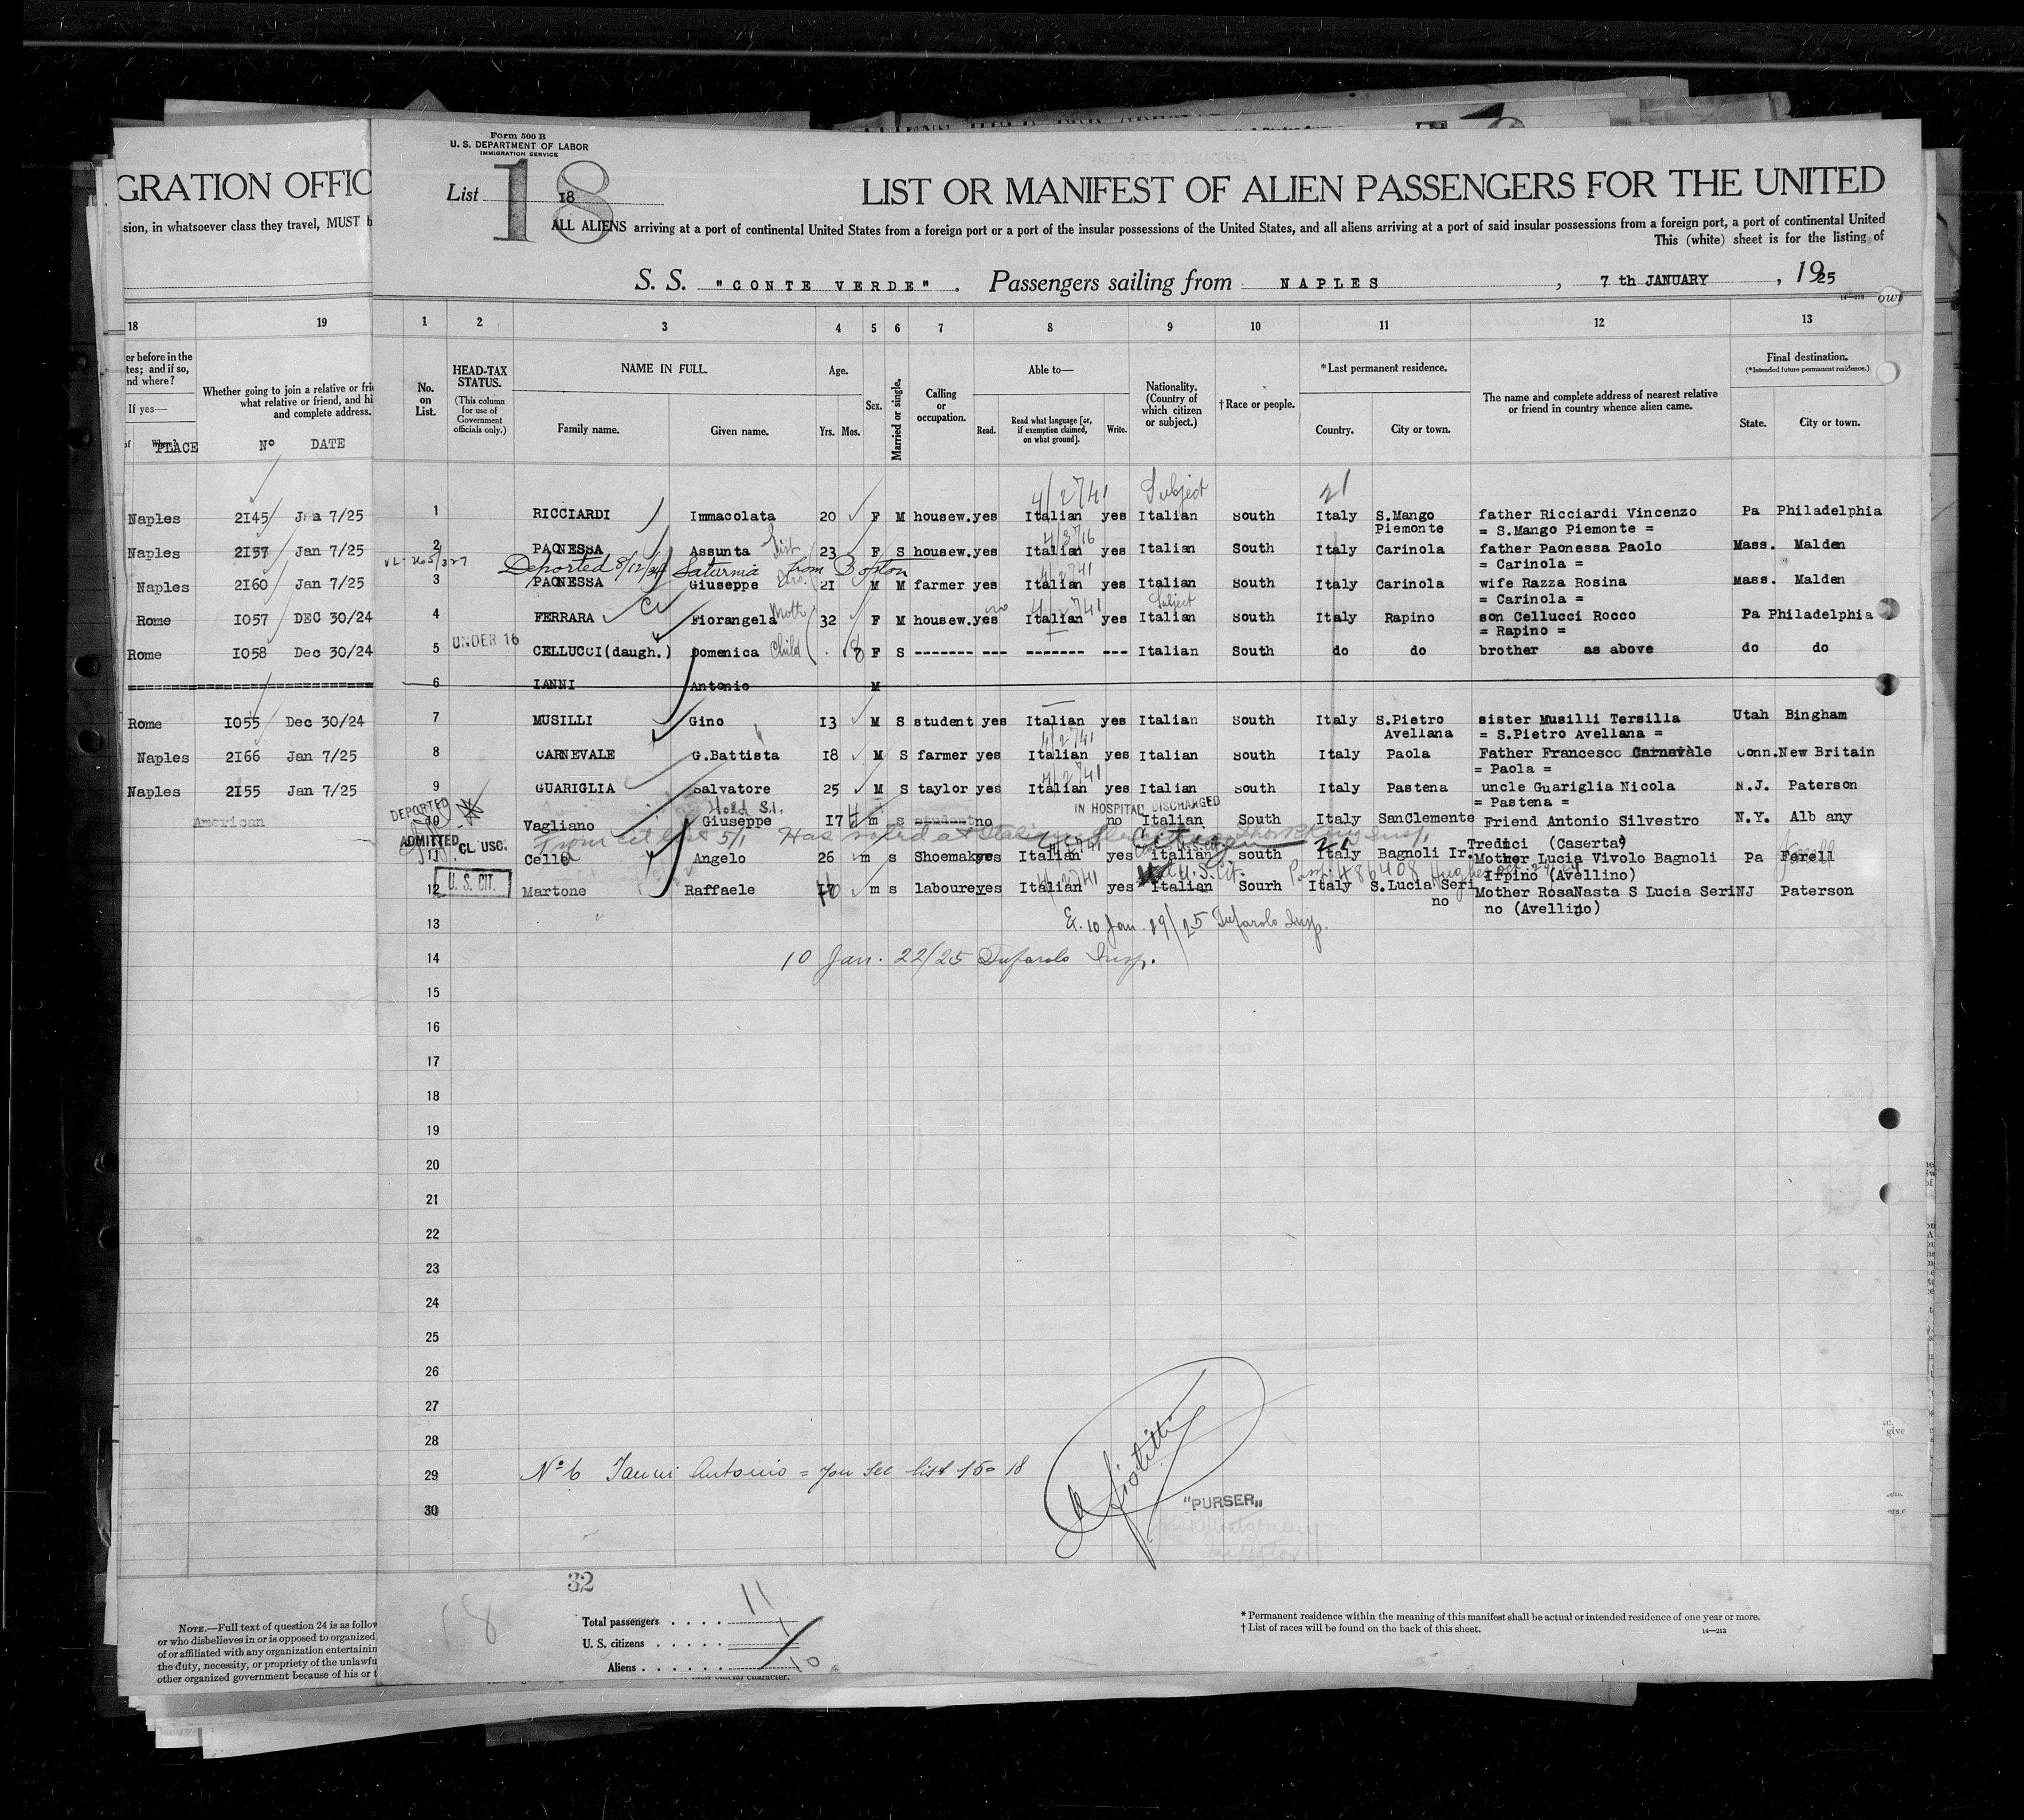 GRATION OFFIC
sion, in whatsoever class they travel, MUST b
18 19
er before in the
tes; and if so,
nd where?
If yes—
Whether going to join a relative or frie
what relative or friend, and hi
and complete address.
PLACE Nº DATE
Naples 2145 Jan 7/25
Naples 2157 Jan 7/25
Naples 2160 Jan 7/25
Rome 1057 DEC 30/24
Rome 1058 Dec 30/24
Rome 1055 Dec 30/24
Naples 2166 Jan 7/25
Naples 2155 Jan 7/25
American
NOTE.—Full text of question 24 is as follow
or who disbelieves in or is opposed to organized
of or affiliated with any organization entertainin
the duty, necessity, or propriety of the unlawfu
other organized government because of his or t
Form 500 B
U. S. DEPARTMENT OF LABOR
IMMIGRATION SERVICE
List 18
18
LIST OR MANIFEST OF ALIEN PASSENGERS FOR THE UNITED
ALL ALIENS arriving at a port of continental United States from a foreign port or a port of the insular possessions of the United States, and all aliens arriving at a port of said insular possessions from a foreign port, a port of continental United
This (white) sheet is for the listing of
S. S. "CONTE VERDE". Passengers sailing from NAPLES, 7 th JANUARY, 1925
14—213
1 2 3 4 5 6 7 8 9 10 11 12 13
No. on List.
HEAD-TAX STATUS.
(This column for use of Government officials only.)
NAME IN FULL.
Family name. Given name.
Age.
Yrs. Mos.
Sex.
Married or single.
Calling or occupation.
Able to—
Read. Read what language [or, if exemption claimed, on what ground]. Write.
Nationality. (Country of which citizen or subject.)
†Race or people.
*Last permanent residence.
Country. City or town.
The name and complete address of nearest relative or friend in country whence alien came.
Final destination.
(*Intended future permanent residence.)
State. City or town.
4/2741 Subject 21
1 RICCIARDI Immacolata 20 F M housew. yes Italian yes Italian South Italy S.Mango Piemonte father Ricciardi Vincenzo = S.Mango Piemonte = Pa Philadelphia
2 PAONESSA Assunta 23 F S housew. yes Italian yes Italian South Italy Carinola father Paonessa Paolo = Carinola = Mass. Malden
Deported 8/12/34 Saturnia from Boston
3 PAONESSA Giuseppe 21 M M farmer yes Italian yes Italian South Italy Carinola wife Razza Rosina = Carinola = Mass. Malden
4 FERRARA Fiorangela Moth 32 F M housew. yes no Italian yes Italian Subject South Italy Rapino son Cellucci Rocco = Rapino = Pa Philadelphia
5 UNDER 16 CELLUCCI(daugh.) Domenica Child 8 F S ------- --- ------- --- Italian South do do brother as above do do
6 IANNI Antonio M
7 MUSILLI Gino 13 M S student yes Italian yes Italian South Italy S.Pietro Avellana sister Musilli Tersilla = S.Pietro Avellana = Utah Bingham
8 CARNEVALE G.Battista 18 M S farmer yes Italian yes Italian South Italy Paola Father Francesco Carnevale = Paola = Conn. New Britain
9 GUARIGLIA Salvatore 25 M S taylor yes Italian yes Italian South Italy Pastena uncle Guariglia Nicola = Pastena = N.J. Paterson
DEPORTED Hold S.I. IN HOSPITAL DISCHARGED
10 Vagliano Giuseppe 17 m s student no no Italian South Italy SanClemente Friend Antonio Silvestro Tredici (Caserta) N.Y. Alb any
ADMITTED
11 CL USC. Cella Angelo 26 m s Shoemaker yes Italian yes italian south Italy Bagnoli Ir. Mother Lucia Vivolo Bagnoli Irpino (Avellino) Pa Farell
12 U. S. CIT. Martone Raffaele m s laboure yes Italian yes Italian Sourh Italy S.Lucia Seri no Mother RosaNasta S Lucia Seri no (Avellino) NJ Paterson
13
14 10 Jan. 22/25
15
16
17
18
19
20
21
22
23
24
25
26
27
28
29 Nº 6 Ianni Antonio = you see list 15= 18
30
"PURSER"
32
18
Total passengers . . . . . 11
U. S. citizens . . . . . . 1
Aliens . . . . . . . 10
* Permanent residence within the meaning of this manifest shall be actual or intended residence of one year or more.
† List of races will be found on the back of this sheet.
14—213